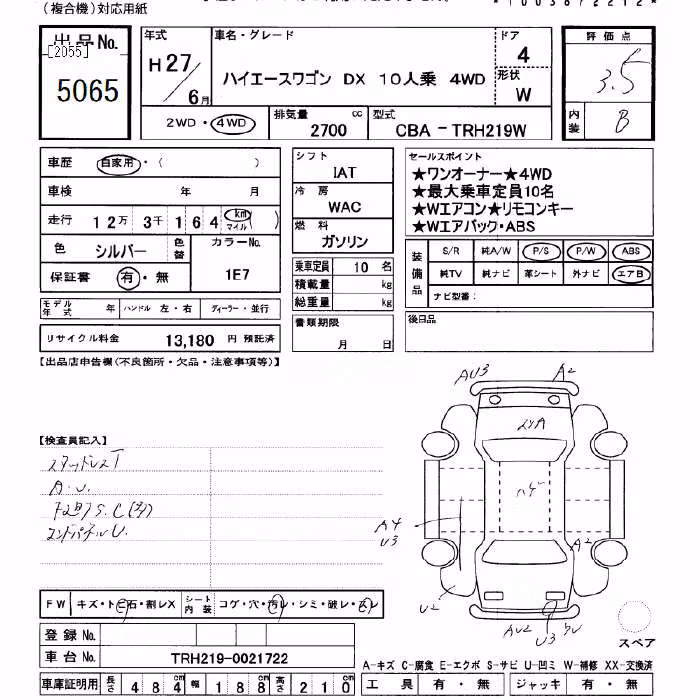 (複合機)対応用紙
出品No.
[2055]
5065
年式
H27/6月
車名・グレード
ハイエースワゴン DX 10人乗 4WD
ドア
4
形状
W
評価点
3.5
内装
B
2WD・4WD
排気量 cc
2700
型式
CBA-TRH219W
車歴 自家用・( )
車検 年 月
走行 12万3千164 km マイル ( )
色 シルバー 色替
カラーNo.
1E7
保証書 有・無
モデル年式 年 ハンドル 左・右 ディーラー・並行
リサイクル料金 13,180 円 預託済
シフト
IAT
冷房
WAC
燃料
ガソリン
乗車定員 10 名
積載量 kg
総重量 kg
書類期限
月 日
セールスポイント
★ワンオーナー★4WD
★最大乗車定員10名
★Wエアコン★リモコンキー
★Wエアバック・ABS
装備品
S/R 純A/W P/S P/W ABS
純TV 純ナビ 革シート 外ナビ エアB
ナビ型番:
後日品
【出品店申告欄(不良箇所・欠品・注意事項等)】
【検査員記入】
スタッドレスT
A.U.
エンドパネルU.
AU3
A2
ハゲ
A4
U3
A2
U2
AU2
U3
スペア
FW キズ・トビ石・割レX シート内装 コゲ・穴・汚レ・シミ・破レ・スレ
登録No.
車台No. TRH219-0021722
車庫証明用 長さ 484 cm 幅 188 cm 高さ 210 cm
A-キズ C-腐食 E-エクボ S-サビ U-凹ミ W-補修 XX-交換済
工具 有・無 ジャッキ 有・無